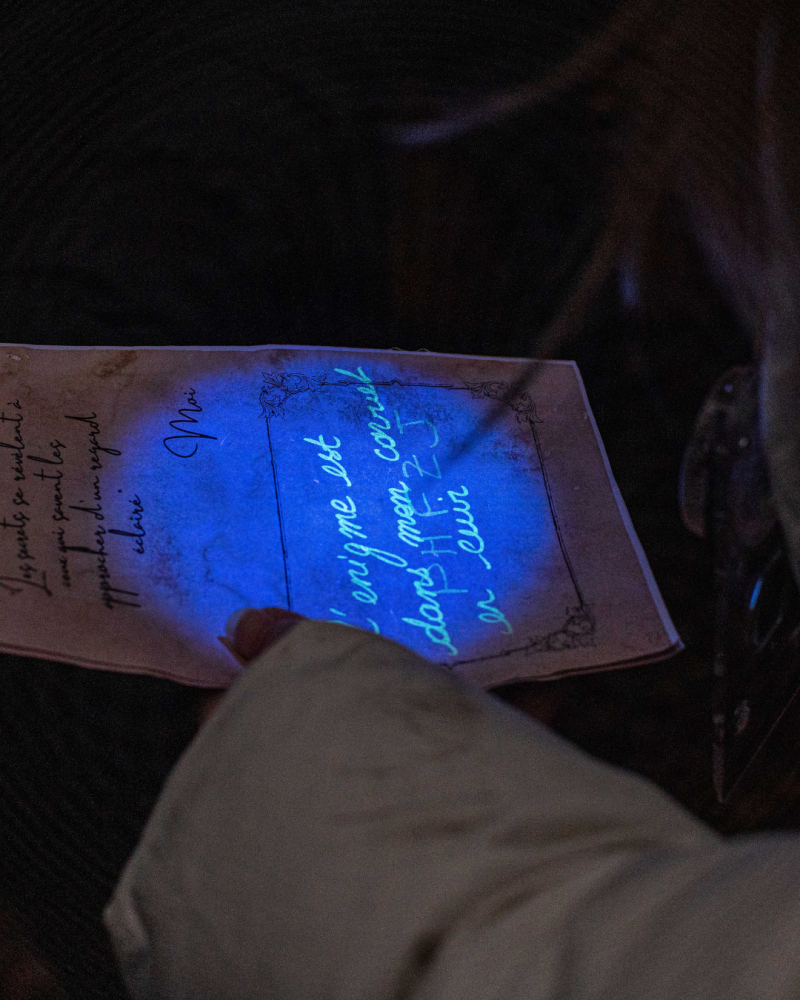 Les secrets se révèlent à
ceux qui savent les
approcher d'un regard
éclairé
Moi
L'enigme est
dans mon carnet
en cuir